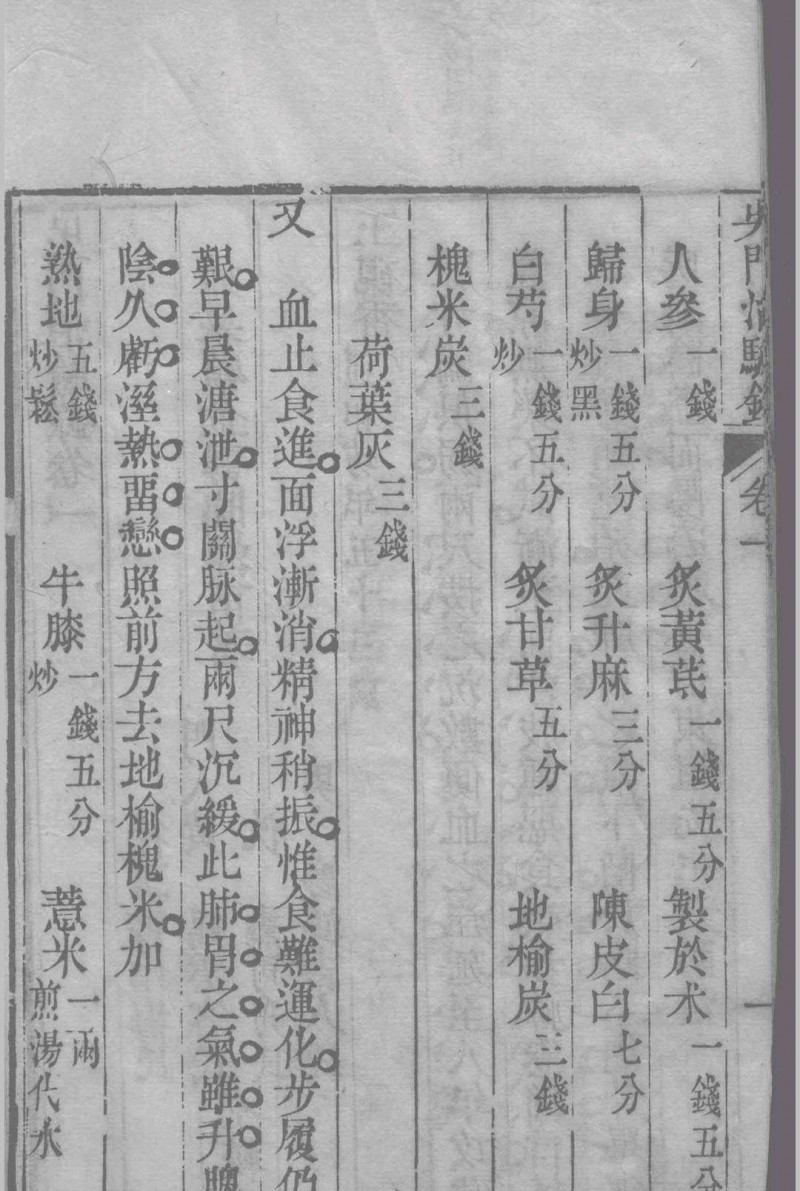 吳門治驗錄 卷一 一
人參一錢 炙黃芪一錢五分 製於朮一錢五分
歸身一錢五分炒黑 炙升麻三分 陳皮白七分
白芍一錢五分炒 炙甘草五分 地榆炭三錢
槐米炭三錢
荷葉灰三錢
又 血止食進面浮漸消精神稍振惟食難運化步履仍
艱早晨溏泄寸關脉起兩尺沉緩此肺胃之氣雖升
陰久虧溼熱畱戀照前方去地榆槐米加
熟地五錢炒鬆 牛膝一錢五分炒 薏米一兩煎湯代水